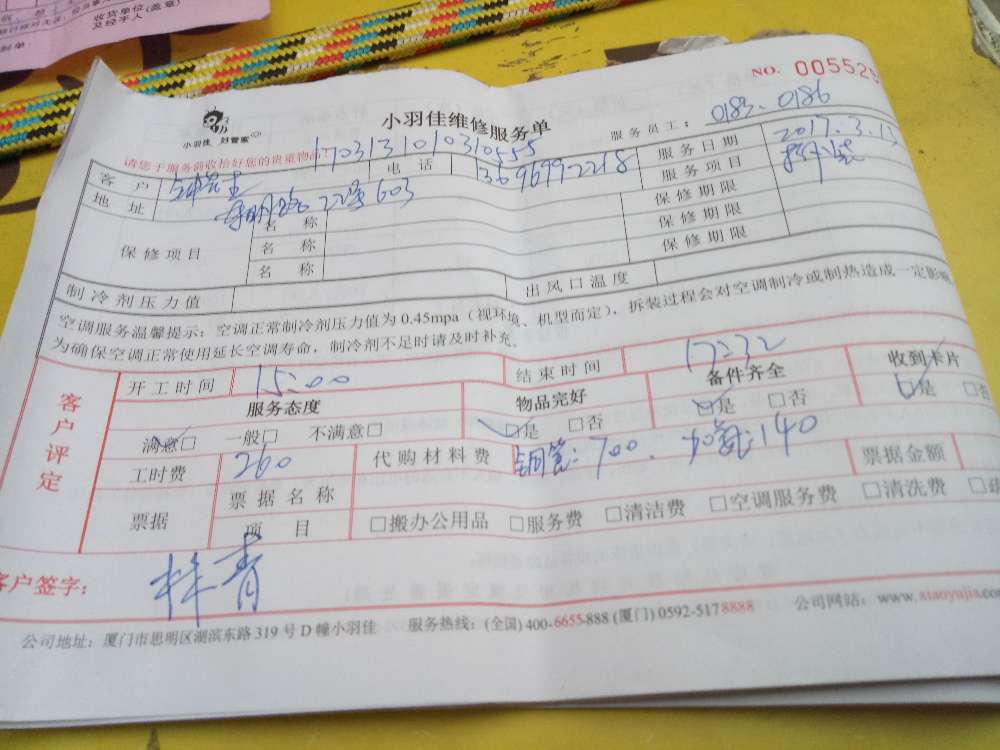 收货单位(盖章)
及经手人
制单:
NO. 005525
小羽佳 好管家
小羽佳维修服务单
服务员工: 0183、0186
请您于服务前收拾好您的贵重物品 1703131010310555
客户 电话 13696992218 服务日期 2017.3.13
地址 603 服务项目
保修项目 名称 保修期限
名称 保修期限
名称 保修期限
制冷剂压力值 出风口温度
空调服务温馨提示: 空调正常制冷剂压力值为 0.45mpa (视环境、机型而定), 拆装过程会对空调制冷或制热造成一定影响
为确保空调正常使用延长空调寿命, 制冷剂不足时请及时补充。
客户评定
开工时间 15:00 结束时间 17:32
服务态度 物品完好 备件齐全 收到卡片
满意□ 一般□ 不满意□ □是 □否 □是 □否 □是 □否
工时费 260 代购材料费 铜管: 700、加氟: 140 票据金额
票据 票据名称
项目 □搬办公用品 □服务费 □清洁费 □空调服务费 □清洗费
客户签字: 林青
公司地址: 厦门市思明区湖滨东路 319 号 D 幢小羽佳 服务热线: (全国) 400-6655-888 (厦门) 0592-5178888 公司网站: www.xiaoyujia.com